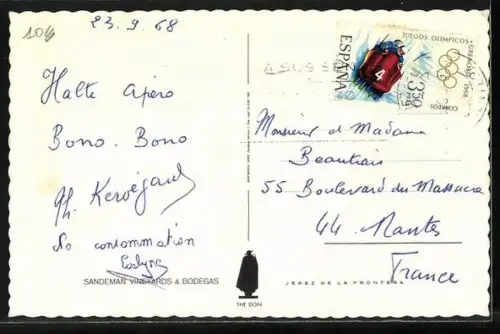 104
23.9.68
JUEGOS OLIMPICOS
GRENOBLE 1968
ESPAÑA
4
3'50
CORREOS
Halte Apéro
Bono-Bono
Ph. Kervégand
No consommation
Monsieur et Madame
Beautrais
55 Boulevard du Massacre
44 Nantes
France
SANDEMAN VINEYARDS & BODEGAS
THE DON
JEREZ DE LA FRONTERA